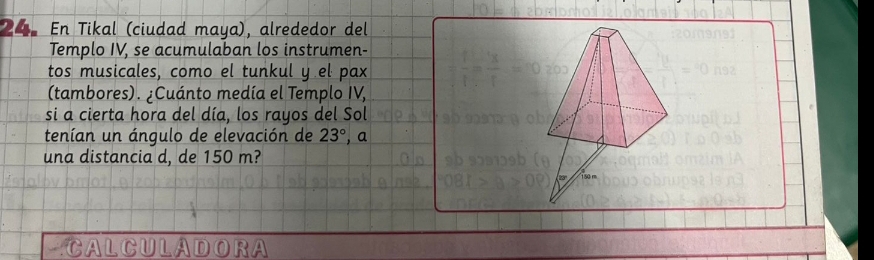 24. En Tikal (ciudad maya), alrededor del
Templo IV, se acumulaban los instrumen-
tos musicales, como el tunkul y el pax
(tambores). ¿Cuánto medía el Templo IV,
si a cierta hora del día, los rayos del Sol
tenían un ángulo de elevación de 23°, a
una distancia d, de 150 m?
23°
150 m
CALCULADORA